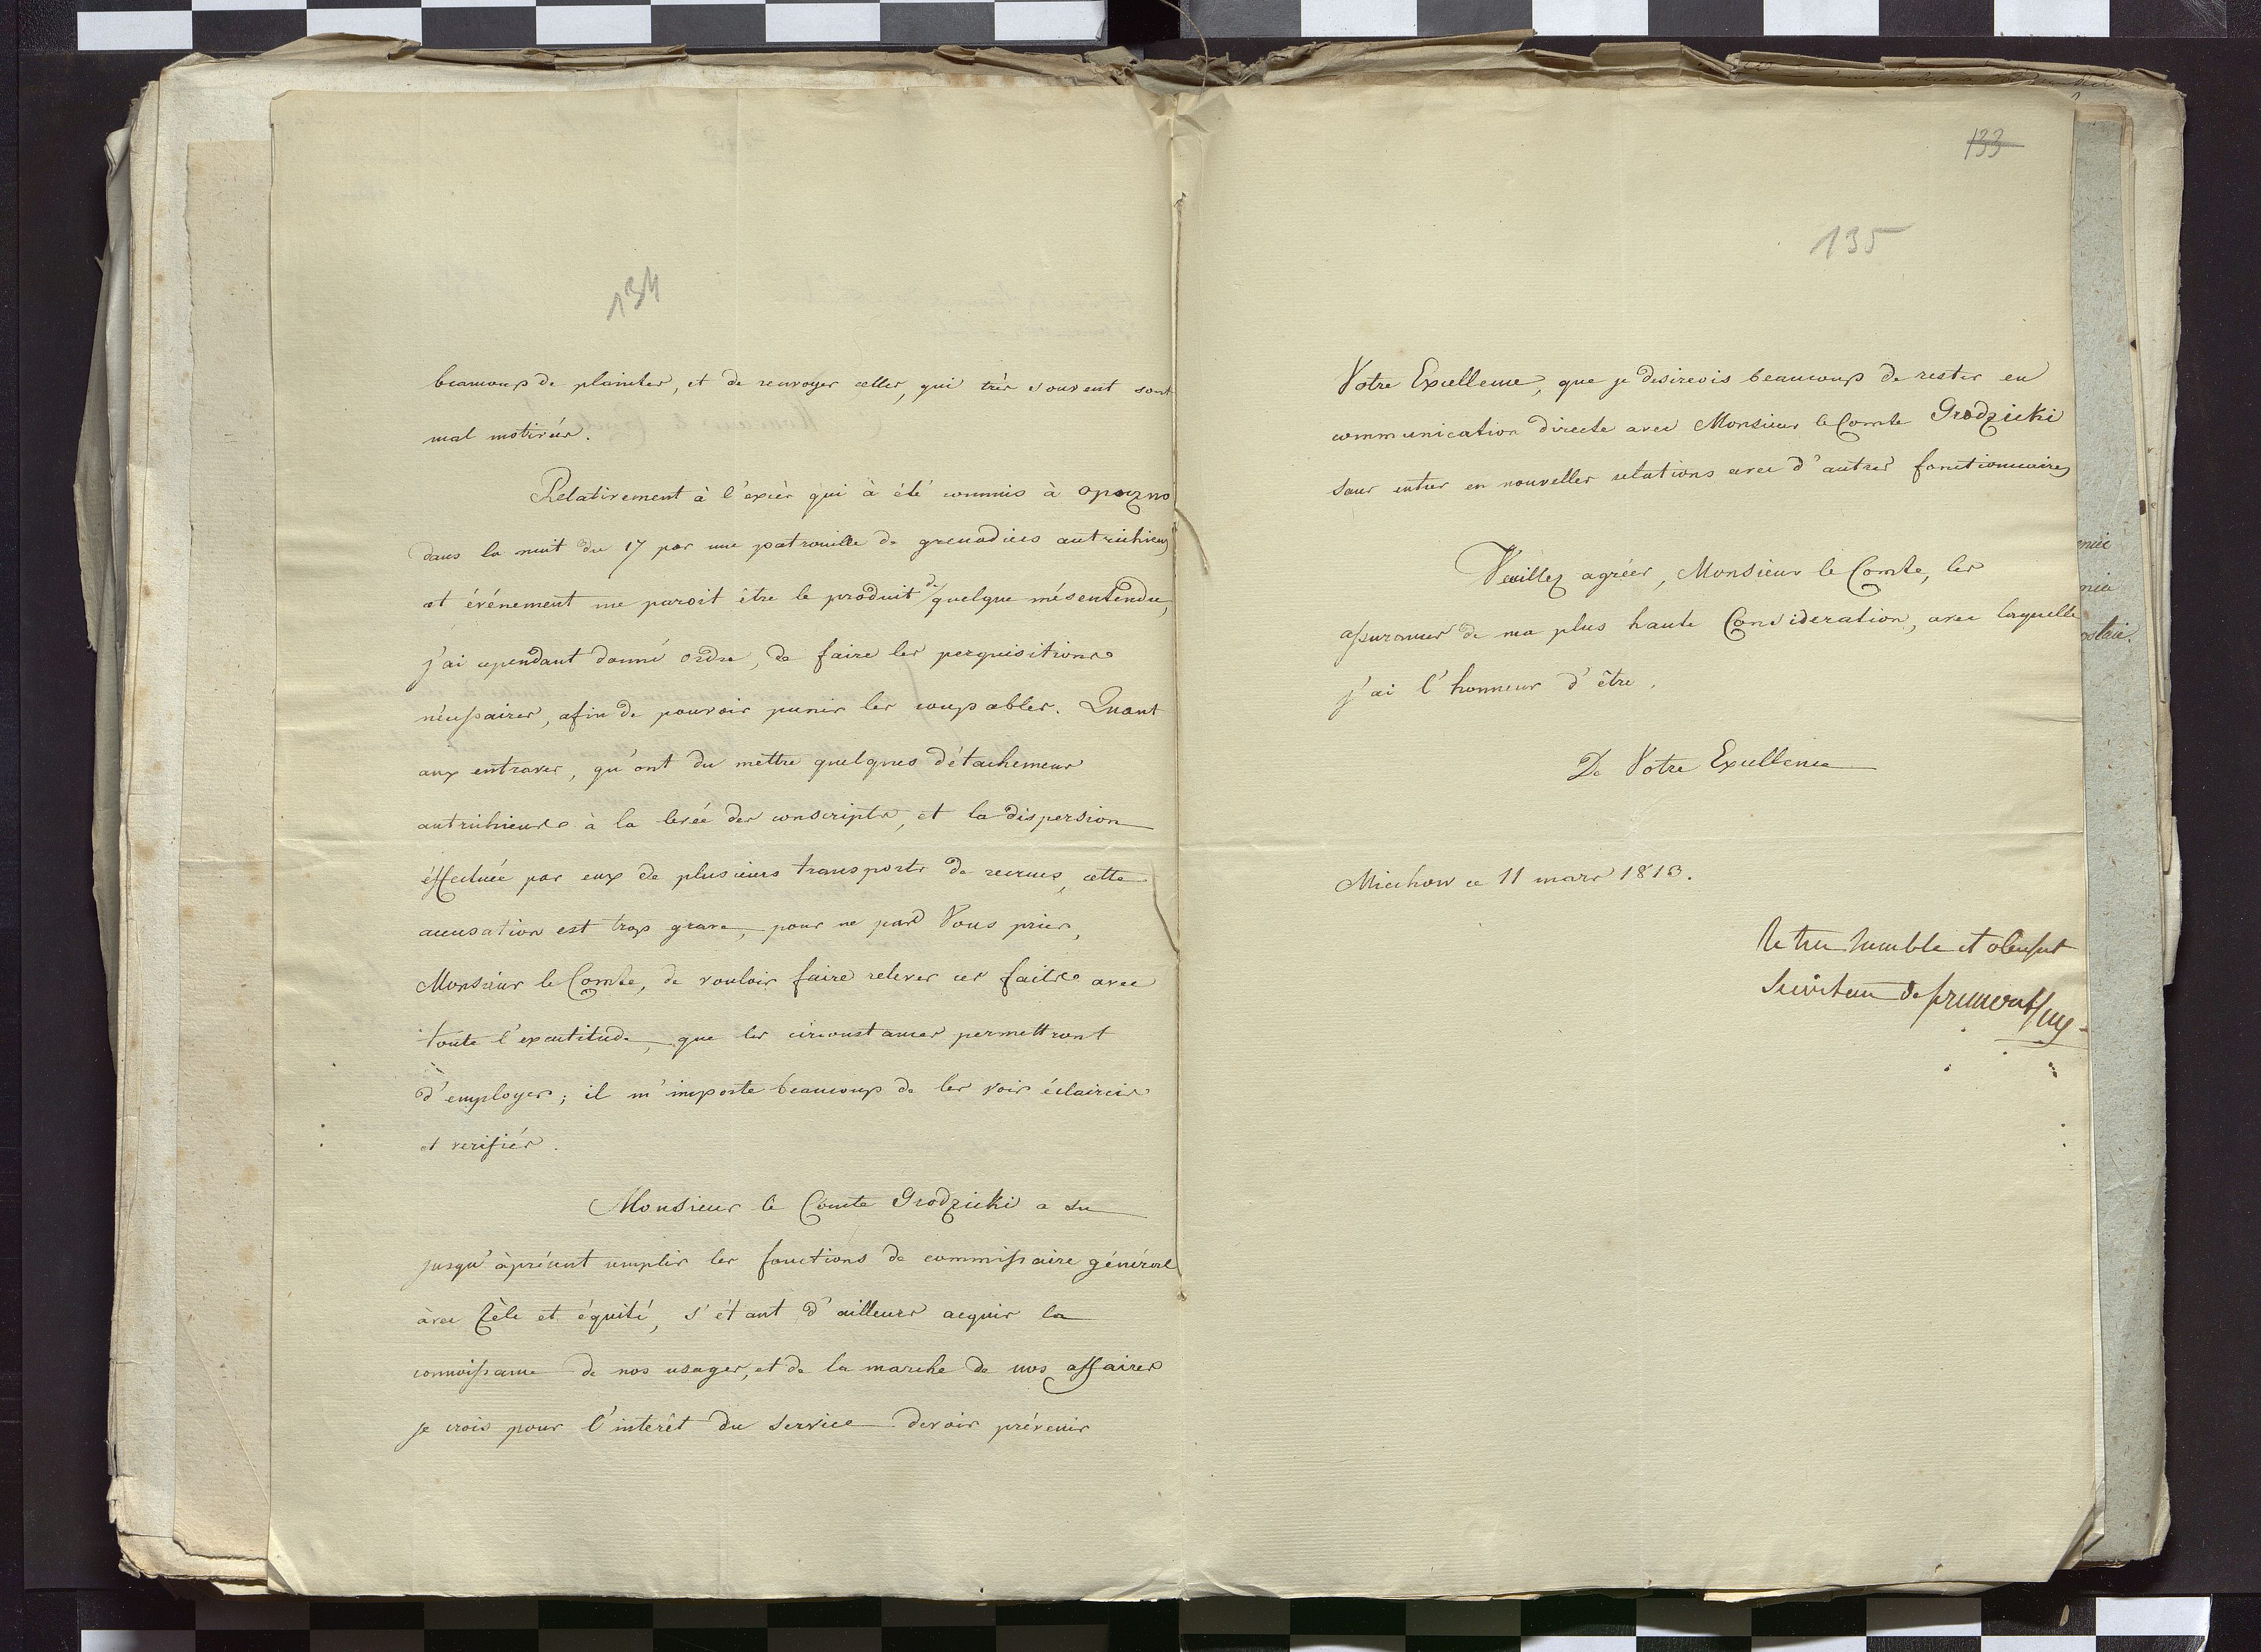 134
beaucoup de plaintes, et de renvoyer celles, qui très souvent sont
mal motivées.
Relativement à l'excès qui à été commis à Opoczno
dans la nuit du 17 par une patrouille de grenadiers autrichiens
cet événement me paroit être le produit de quelque mésentendu,
j'ai cependant donné ordre, de faire les perquisitions
nécessaires, afin de pouvoir punir les coupables. Quant
aux entraves, qu'ont du mettre quelques détachemens
autrichiens à la levée des conscripts, et la dispersion
éffectuée par eux de plusieurs transports de recrues, cette
accusation est trop grave, pour ne pas Vous prier,
Monsieur le Comte, de vouloir faire relever ces faits avec
toute l'exactitude, que les circonstances permettront
d'employer; il m'importe beaucoup de les voir éclaircis
et verifiés.
Monsieur le Comte Grodzicki a su
jusqu'àprésent remplir les fonctions de commissaire général
àvec zèle et équité, s'étant d'ailleurs acquis la
connoissance de nos usages, et de la marche de nos affaires
je crois pour l'interêt du service devoir prévenir
133
135
Votre Excellence, que je desirerois beaucoup de rester en
communication directe avec Monsieur le Comte Grodzicki
sans entrer en nouvelles relations avec d'autres fonctionnaires
Veuillez agréer, Monsieur le Comte, les
assurances de ma plus haute Consideration, avec laquelle
j'ai l'honneur d'être.
De Votre Excellence
Miechow ce 11 mars 1813.
le très humble et obeissant
Serviteur de frimont